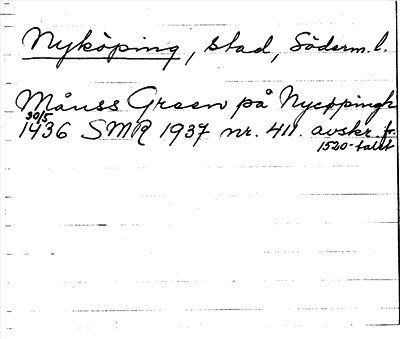 Nyköping, stad, Söderm. l.
Månss Green på Nycøpingh
30/5
1436 SMR 1937 nr. 411. avskr. fr.
1520-talet